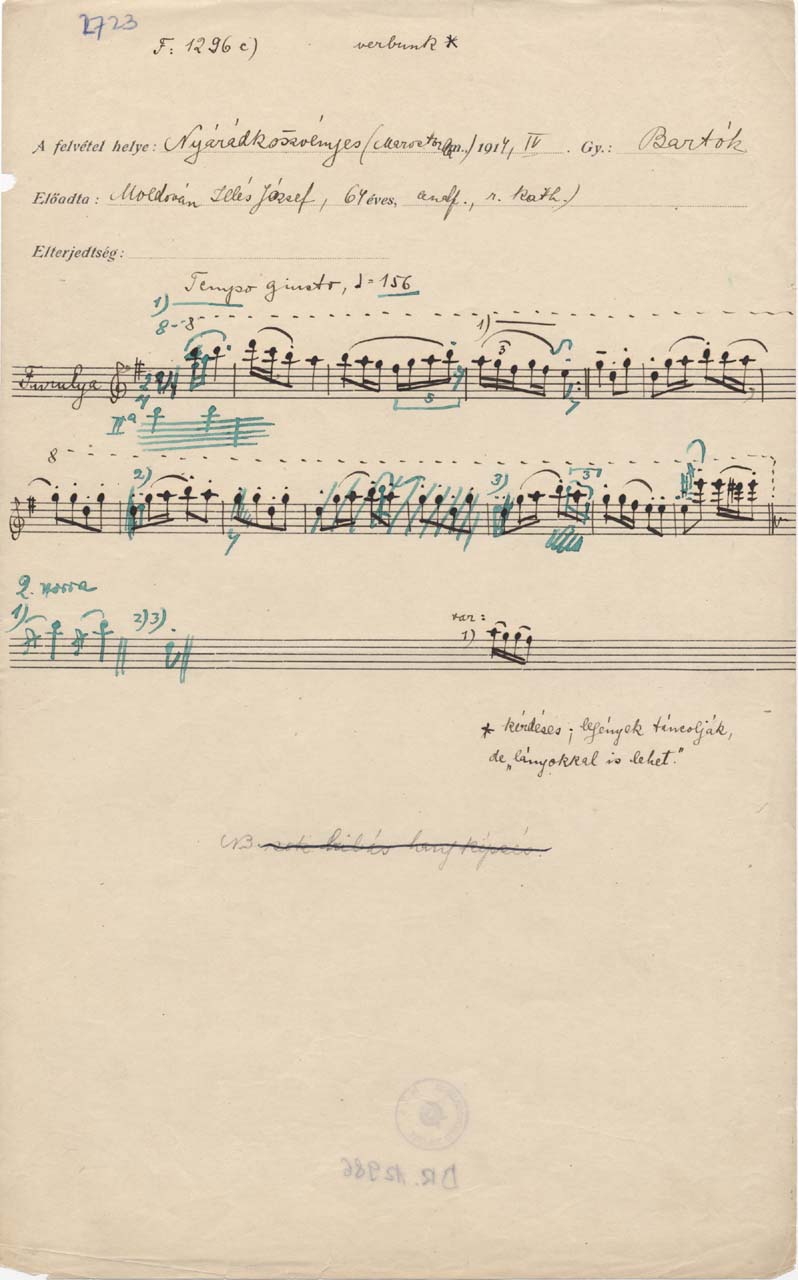 2723
F: 1296 c) verbunk *
A felvétel helye: Nyárádköszvényes (Marostorda m.) 1914, IV. Gy.: Bartók
Előadta: Moldován Illés József, 64 éves, r. kath.)
Elterjedtség:
Tempo giusto, = 156
1)
8--8
1)
3
Furulya 2/4
5
IIª
8
2) 3) 3
2.
1) 2) 3) var:
1)
* kérdéses; legények táncolják,
de „lányokkal is lehet."
NB. hibás hangképzés.
DR. 12986